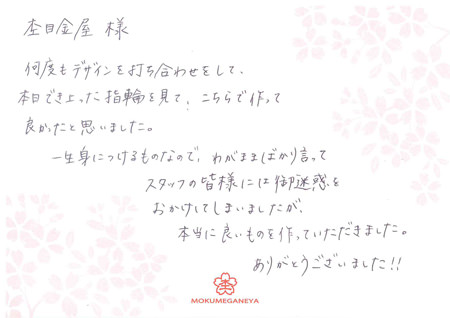 杢目金屋 様
何度もデザインを打ち合わせをして、
本日でき上った指輪を見て、こちらで作って
良かったと思いました。
一生身につけるものなので、わがままばかり言って
スタッフの皆様には御迷惑を
おかけしてしまいましたが、
本当に良いものを作っていただきました。
ありがとうございました!!
MOKUMEGANEYA